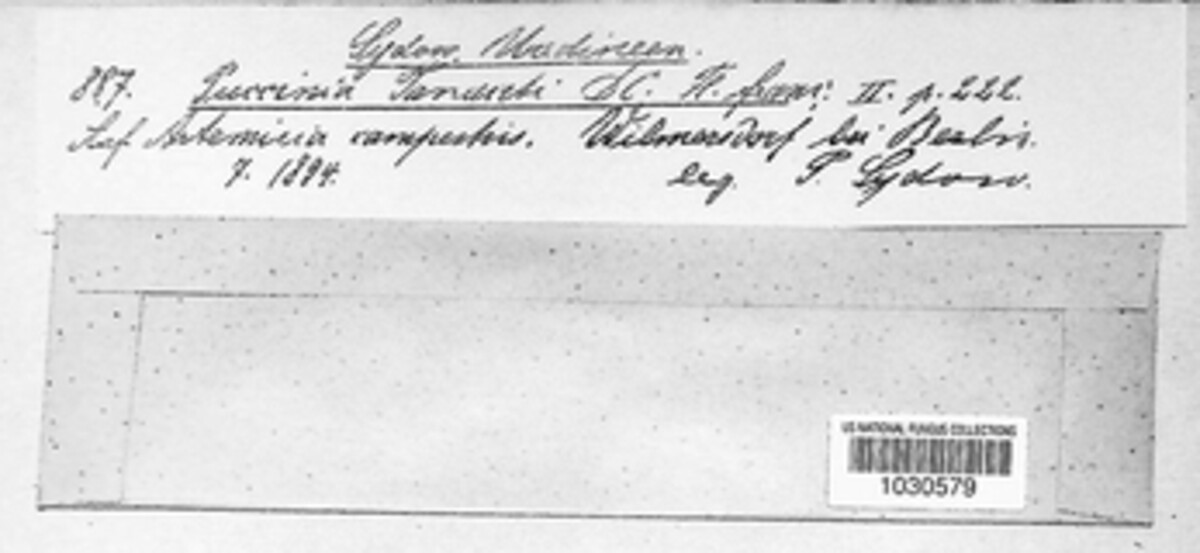 Sydow, Uredineen.
887. Puccinia Tanaceti DC. Fl. franc: II. p. 222.
Auf Artemisia campestris. Wilmersdorf bei Berlin.
7. 1894. leg. P. Sydow.
US NATIONAL FUNGUS COLLECTIONS
1030579